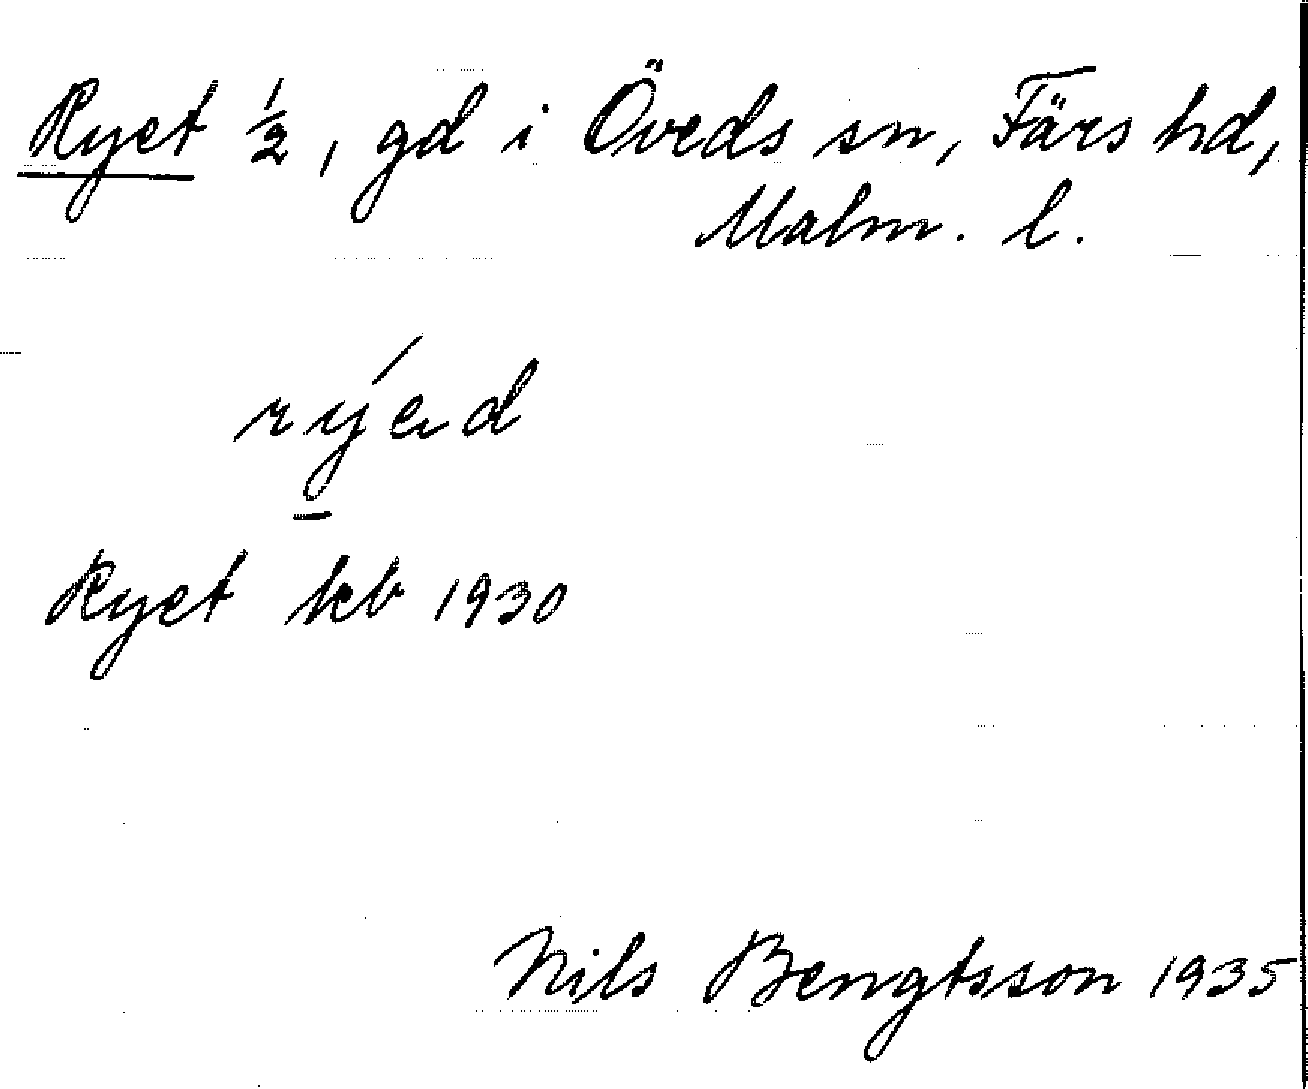 Ryet ½, gd i Öveds sn, Färs hd,
Malm. l.
rýed
Ryet kb 1930
Nils Bengtsson 1935